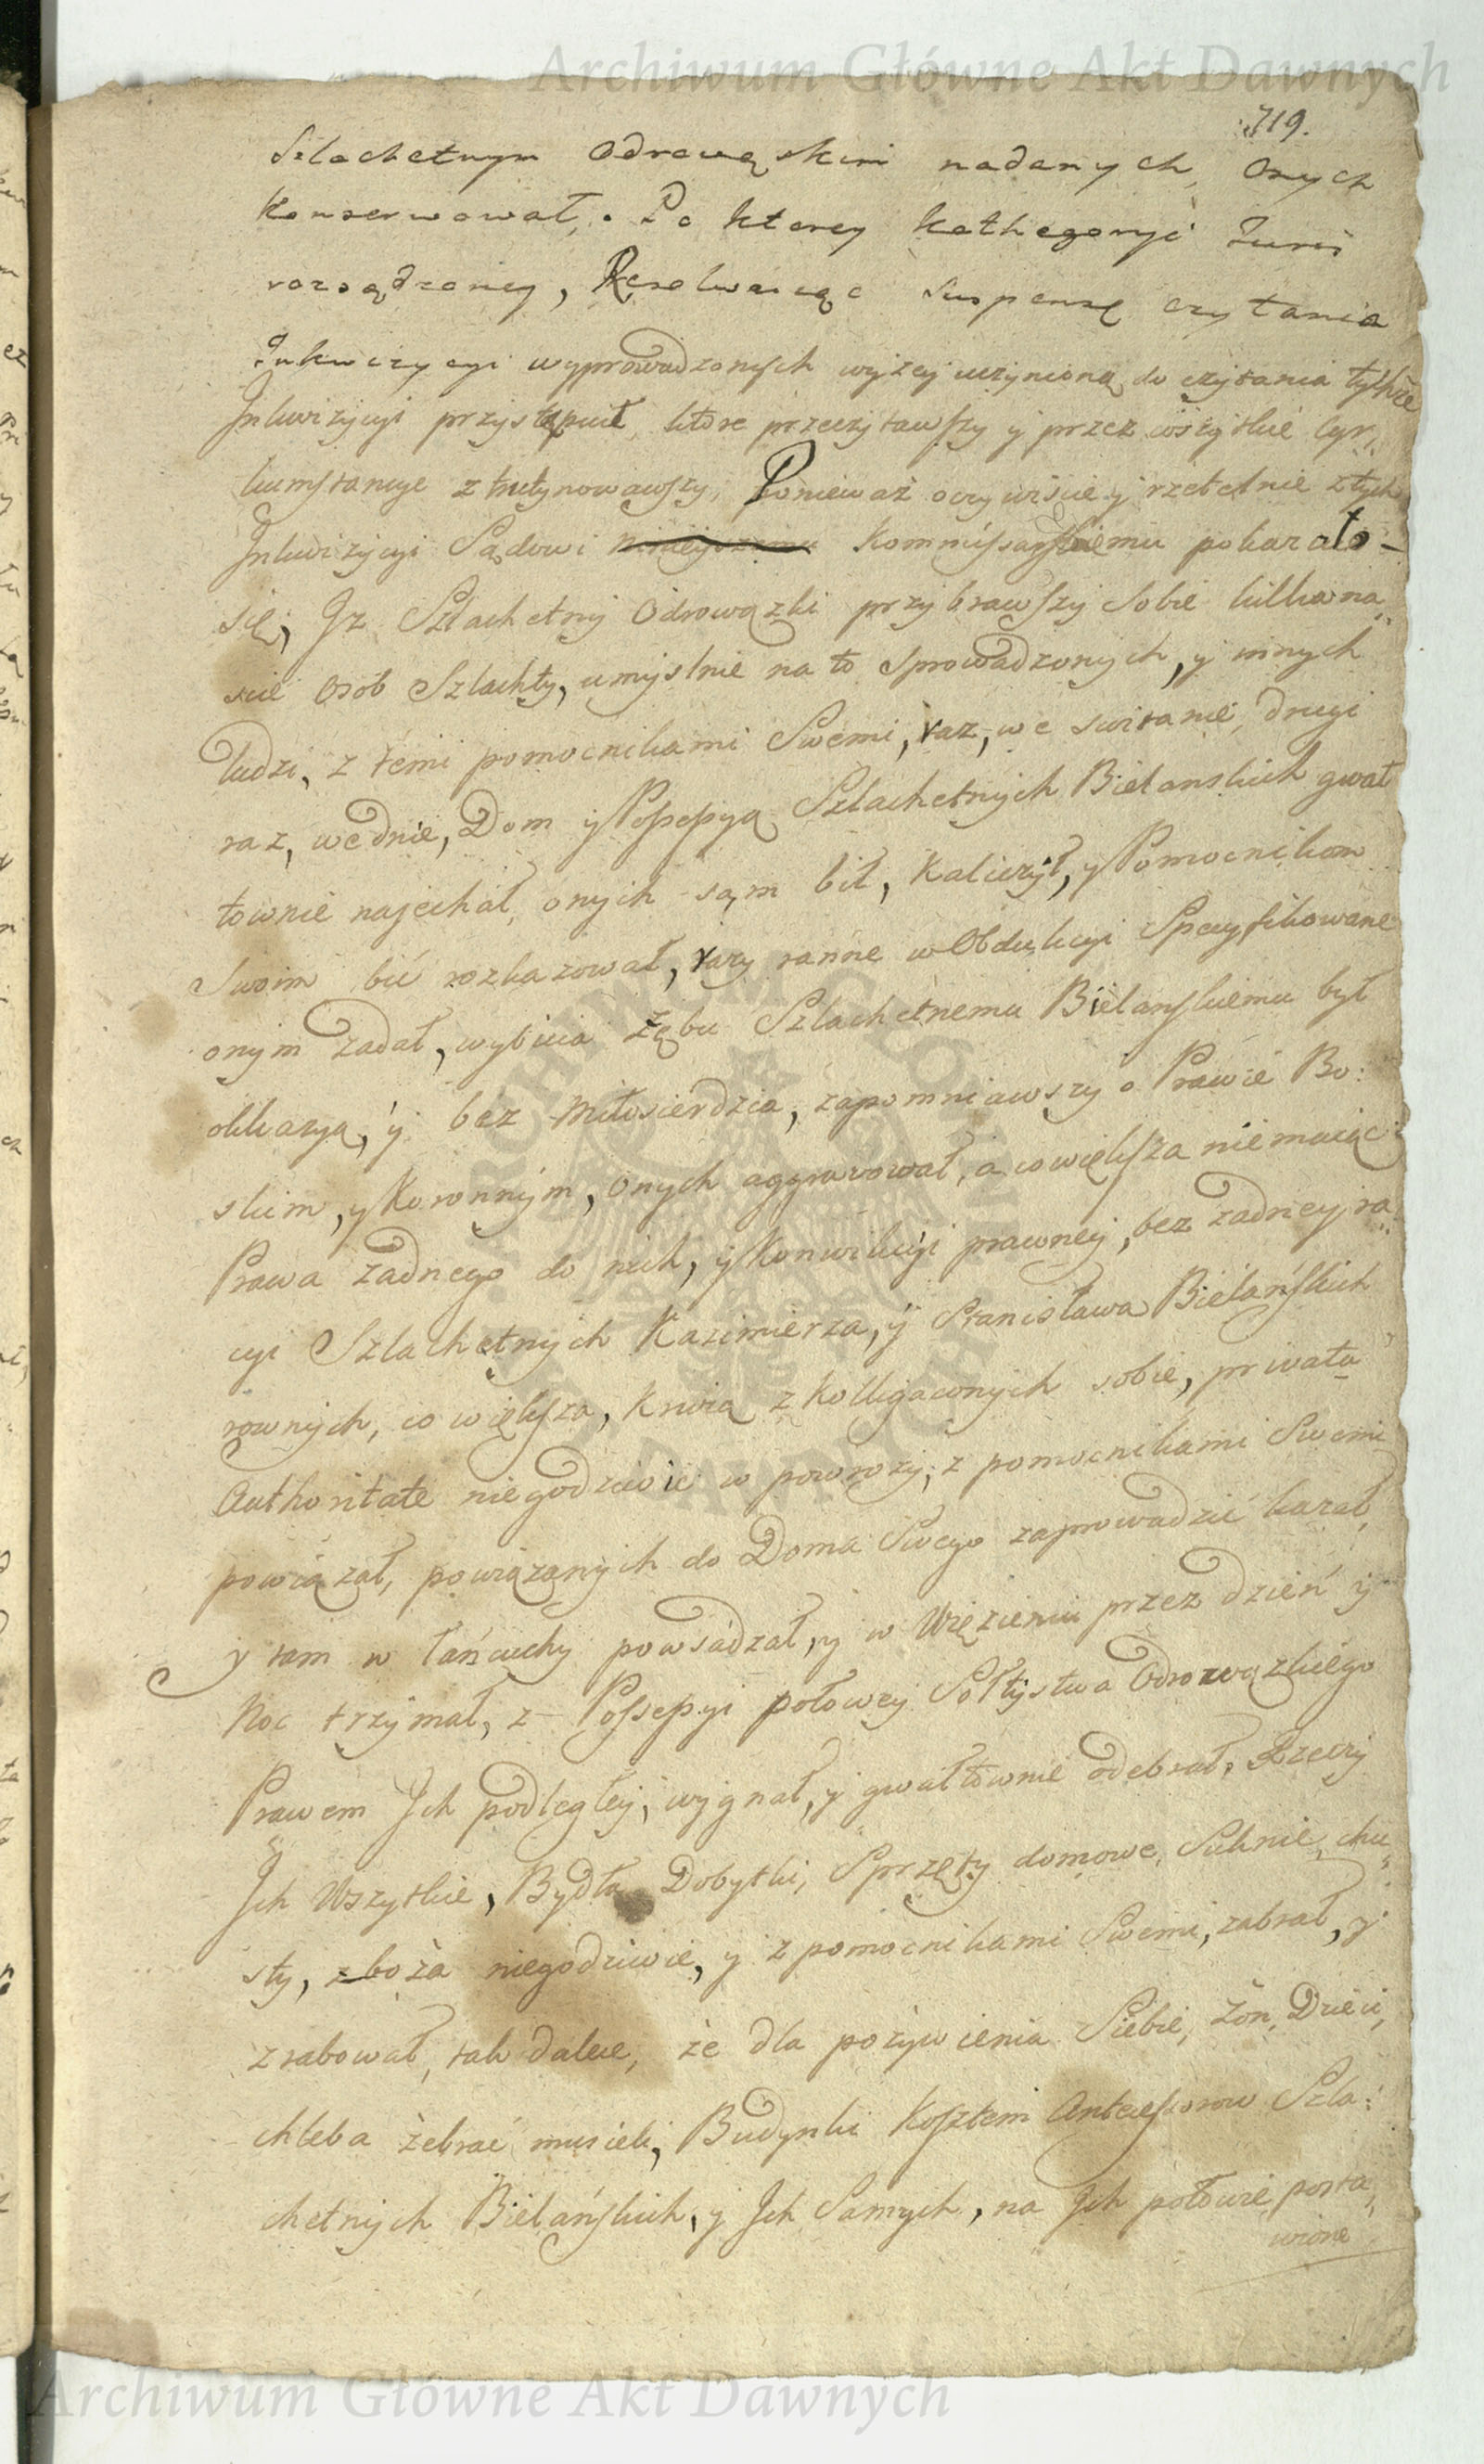 Archiwum Główne Akt Dawnych
719.
Szlachetnym Odrowąskim nadanych, Onych
Konserwował. Po ktorey kathegoryi Juris
rozsądzoney, Rezolwuiąc Suspensę czytania
Inkwizycyi wyprowadzonych wyzey uczynioną do czytania tychże
Inkwizycyi przystąpuił, ktore przeczytawszy y przez wszytkie cyr„
kumstancye ztrutynowawszy, Ponieważ oczywiscie y rzetelnie z tych
Inkwizycyi Sądowi Kommissarskiemu pokazało-
się, Jz Szlachetny Odrowązki przybrawszy Sobie kilkana„
scie Osob Szlachty, umyslnie na to Sprowadzonych, y innych
ludzi, z temi pomocnikami Swemi, raz, we switanie, drugi
raz, we dnie, Dom y Possessyą Szlachetnych Bielanskich gwał
townie najechał, onych sąm bił, Kaliczył, y Pomocnikom
Swoim bić rozkazował, razy ranne w Obdukcyi Specyfikowane
onym zadał, wybicia Zębu Szlachetnemu Bielanskiemu był
okkazyą, y bez Miłosierdzia, zapomniawszy o Prawie Bo:
skim, y Koronnym, Onych aggrawował, a co większa niemaiąc
Prawa żadnego do nich, y Konwikcyi prawney, bez zadney ra„
cyi Szlachetnych Kazimierza, y Stanisława Bielańskich
rownych, co większa, Krwią z Kolligaconych sobie, privata
Authoritate niegodziwie w powrozy, z pomocnikami Swemi
powiązał, powiązanych do Doma Swego zaprowadzić kazał,
y tam w łańcuchy powsadzał, y w Więzieniu przez dzień y
Noc trzymał, z Possessyi połowey Sołtystwa Odrowązkiego
Prawem Jch podległey, wygnał, y gwałtownie odebrał, Rzeczy
Jch Wszytkie, Bydła Dobytki, Sprzęty domowe, Suknie, chu„
sty, zboża niegodziwie, y z pomocnikami Swemi, zabrał, y
zrabował, tak dalece, że dla pożywienia Siebie, Żon, Dzieci,
chleba żebrać musieli, Budynki Kosztem Antecessorow Szla:
chetnych Bielańskich, y Jch Samych, na Jch połowie posta„
wione
Archiwum Główne Akt Dawnych